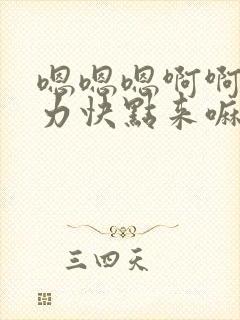 嗯嗯嗯啊啊
力快點来嘛
三四天